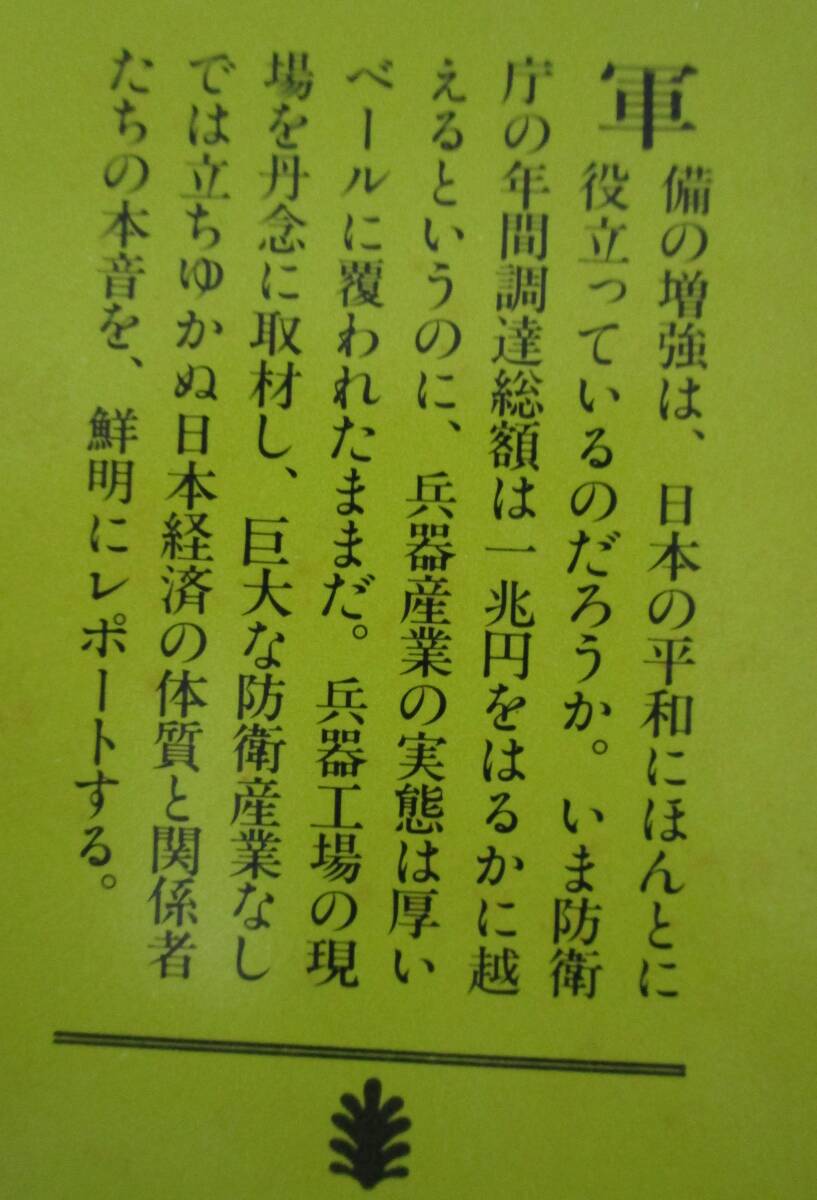 軍備の増強は、日本の平和にほんとに
役立っているのだろうか。いま防衛
庁の年間調達総額は一兆円をはるかに越
えるというのに、兵器産業の実態は厚い
ベールに覆われたままだ。兵器工場の現
場を丹念に取材し、巨大な防衛産業なし
では立ちゆかぬ日本経済の体質と関係者
たちの本音を、鮮明にレポートする。